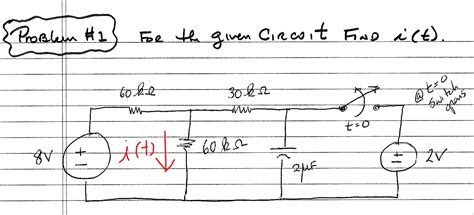 Problem #1 For the given Circuit Find i(t).
60 kΩ 30 kΩ @ t=0
switch
opens
t=0
8V + − i(t) 60 kΩ 2µF + − 2V